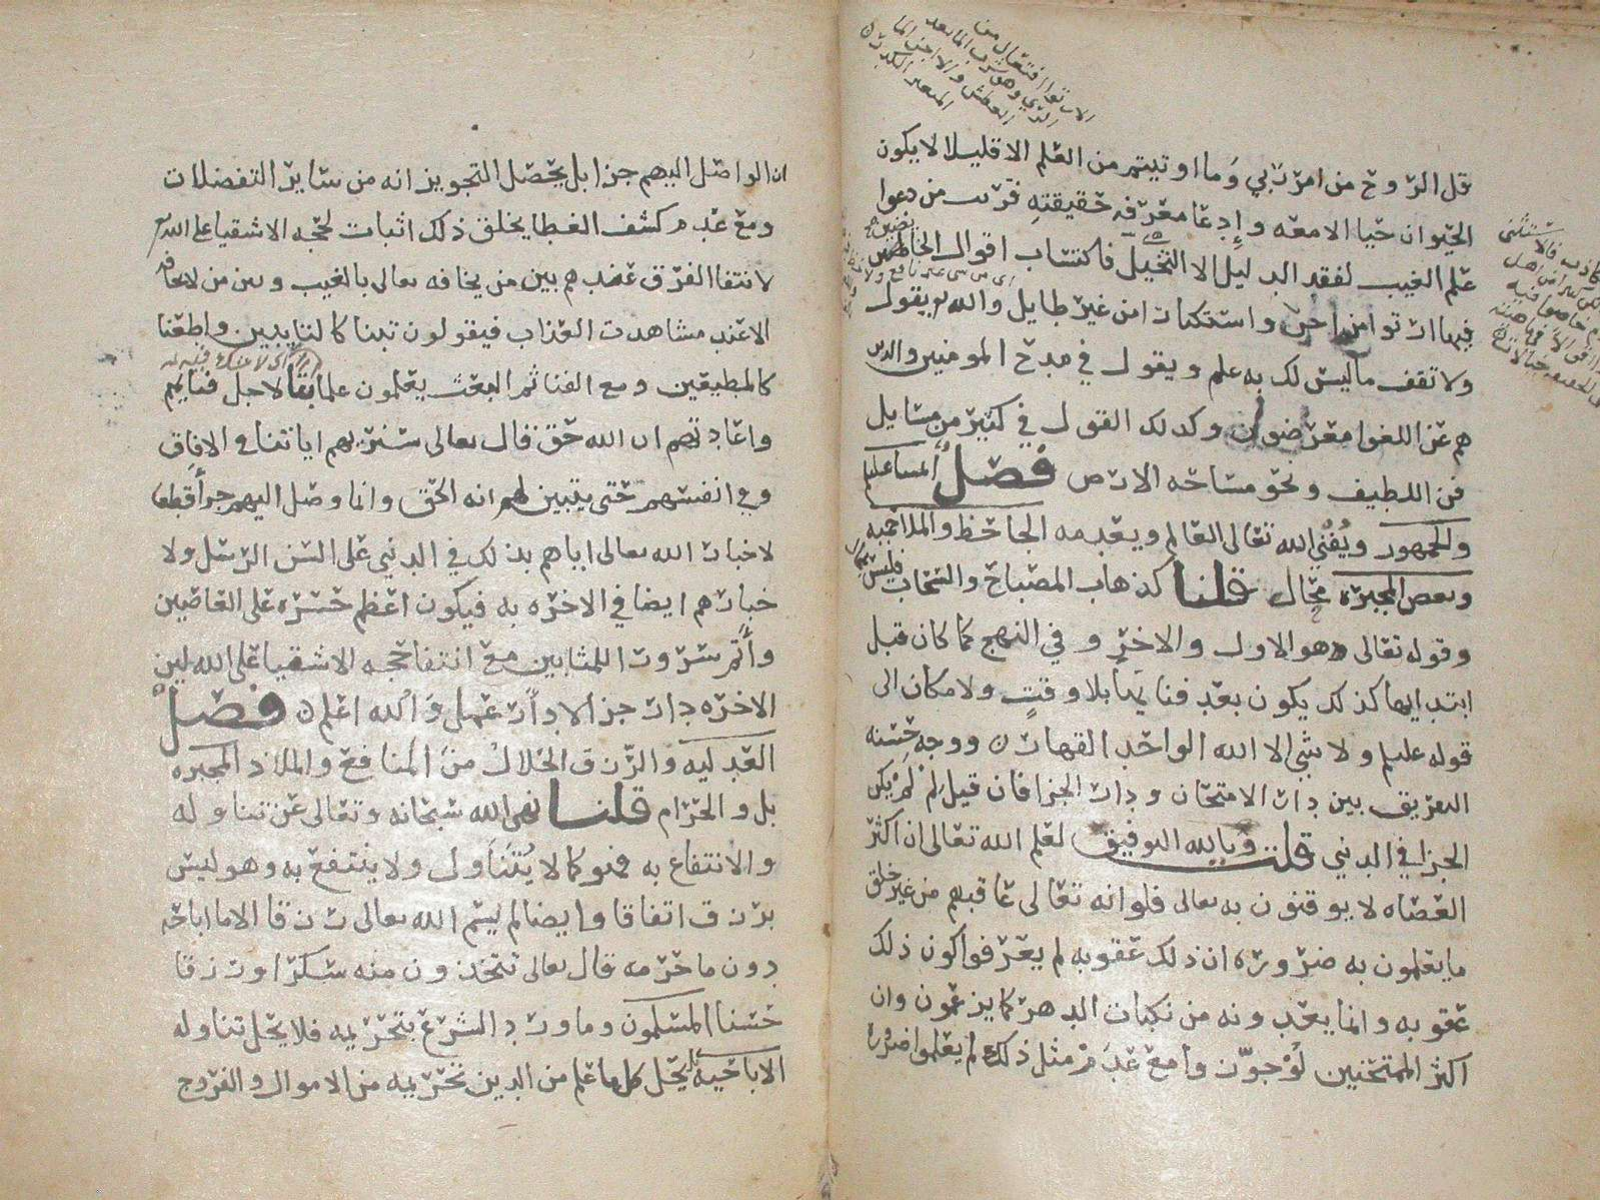 قل الروح من امر ربي وما اوتيتم من العلم الا قليلا لا يكون
الحيوان حيا الا معه وادعا معرفه حقيقته قرب من دعوا
علم الغيب لفقد الدليل الا التخيل فاكتساب اقوال الخايضين
فيها ارتوا من اجن واستكثار من غير طايل والله يقول
ولا تقف ما ليس لك به علم ويقول في مدح المومنين والذين
هم عن اللغوا معرضون وكذلك القول في كثير من مسايل
فن اللطيف ونحو مساحه الارض فصل
والجمهور ويفني الله تعالى العالم ويعدمه الجاحظ والملاحميه
وبعض المجبره محال قلنا كذهاب المصباح والسحاب فليس
وقوله تعالى هو الاول والاخر و في النهج كما كان قبل
ابتدايها كذلك يكون بعد فنايها بلا وقت ولا مكان الى
قوله عليلم ولا شي الا الله الواحد القهار ووجه حسنه
التفريق بين دار الامتحان ودار الجزا فان قيل لم لم يكن
الجزا في الدنيى قلت وبالله التوفيق لعلم الله تعالى ان اكثر
العصاه لا يوقنون به تعالى فلو انه تعالى عاقبهم من غير خلق
ما يعلمون به ضروره ان ذلك عقوبه لم يعرفوا كون ذلك
عقوبه وانما يعدونه من نكبات الدهر كما يزعمون وان
اكثر الممتحنين لوجوزن وامع عدم مثل ذلك لم يعلموا ضروره
ان الواصل اليهم جزا بل يحصل التجويز انه من ساير التفضلات
ومع عدم كشف الغطا بخلق ذلك اثبات لحجه الاشقيا على الله
لانتفا الفرق عندهم بين من يخافه تعالى بالغيب وبين من لا يخافه
الا عند مشاهدت العذاب فيقولون تبنا كالتايبين واطعنا
كالمطيعين ومع الفنا ثم البعث يعلمون علما بتا لاجل فنايهم
واعادتهم ان الله حق قال تعالى سنريهم اياتنا في الافاق
وفي انفسهم حتى يتبين لهم انه الحق وانما وصل اليهم جزا قطعا
لاخبار الله تعالى اياهم بذلك في الدنيى على السن الرسل ولا
خبارهم ايضا في الاخره به فيكون اعظم حسره على العاصين
واتم سرورا للمثابين مع انتفا حجه الاشقيا على الله لين
الاخره دار جزا لا دار عمل والله اعلم فصل
العدليه والرزق الحلال من المنافع والملاذ المجبره
بل والحرام قلنا نهى الله سبحانه وتعالى عن تناوله
والانتفاع به فهو كما لا يتناول ولا ينتفع به وهو ليس
برزق اتفاقا وايضا لم يسم الله تعالى رزقا الا ما اباحه
دون ما حرمه قال تعالى تتخذون منه سكرا ورزقا
حسنا المسلمون وما ورد الشرع بتحريمه فلا يحل تناوله
الاباحيه يحل كل ما علم من الدين تحريمه من الاموال والفروج